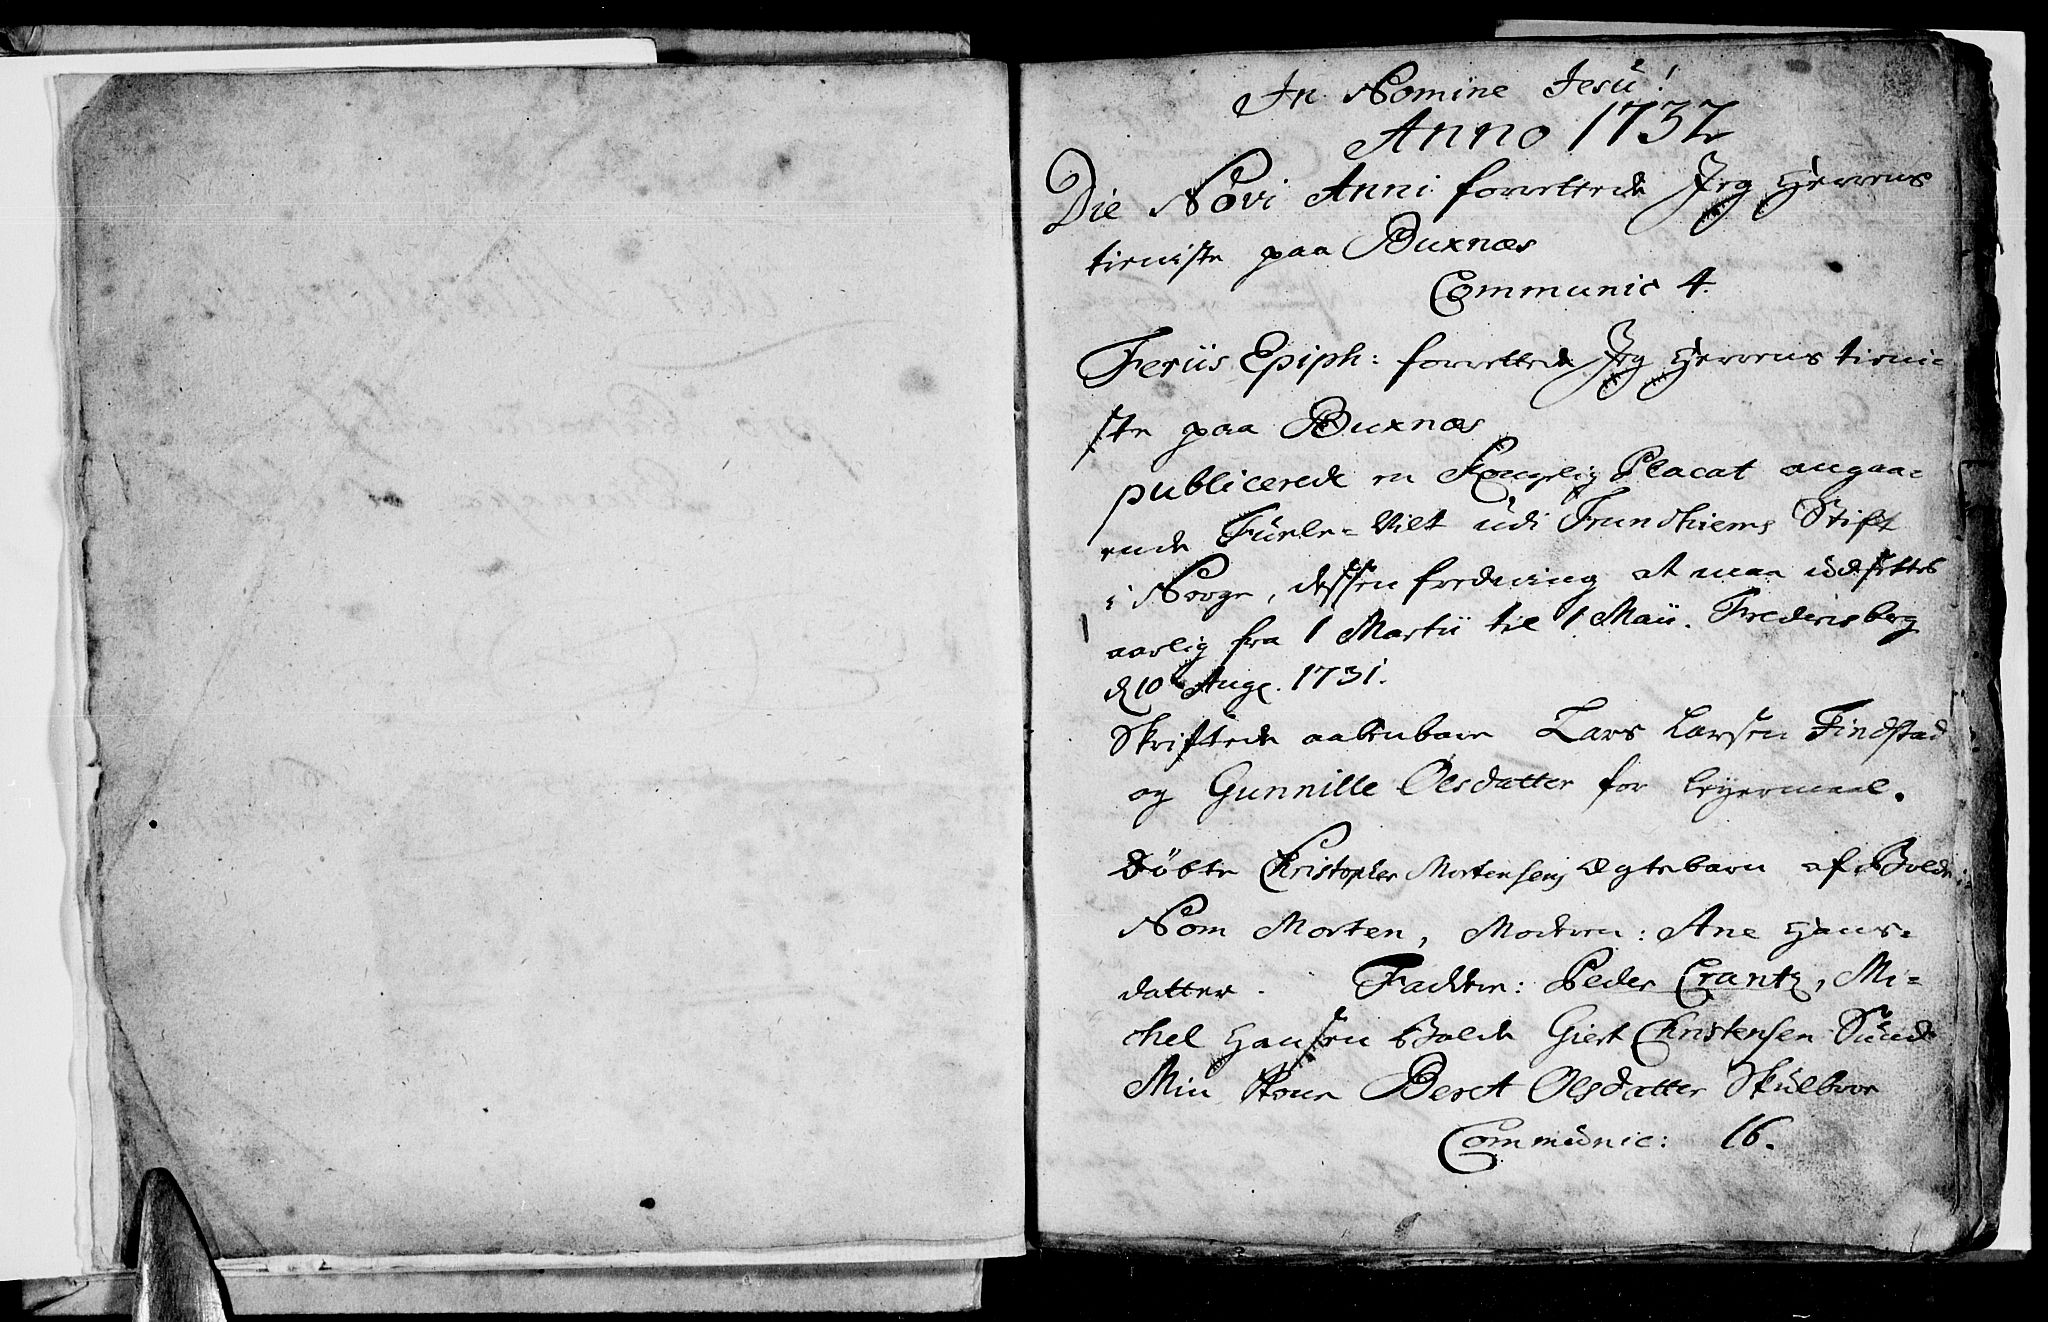 In Nomine Jesu!
Anno 1732
Die Novi Anni forrettede Jeg Herrens
tieniste paa Buxnæs
Communic 4.
Feriis Epiph: forrettede Jeg Herrens tieni-
ste paa Buxnæs
publicerede en Kongelig Placat angaa-
ende Fuele-Vilt udi Trundhiems Stift
i Norge, dessen fredning at maa udsettes
aarlig fra 1 Martii til 1 Maii. Frederisberg
d 10 Aug. 1731.
Skriftede aabenbare Lars Larsen Findstad
og Gunnille Olsdatter for leyermaal.
Döbte Christopher Mortensens Ægtebarn af Bolde
Nom Morten, Modren: Ane Hans-
datter. Faddere: Peder Crantz, Mi-
chel Hansen Bolde Giert Christensen Sund
Min Beret Olsdatter Skulbroe
Communic: 16.